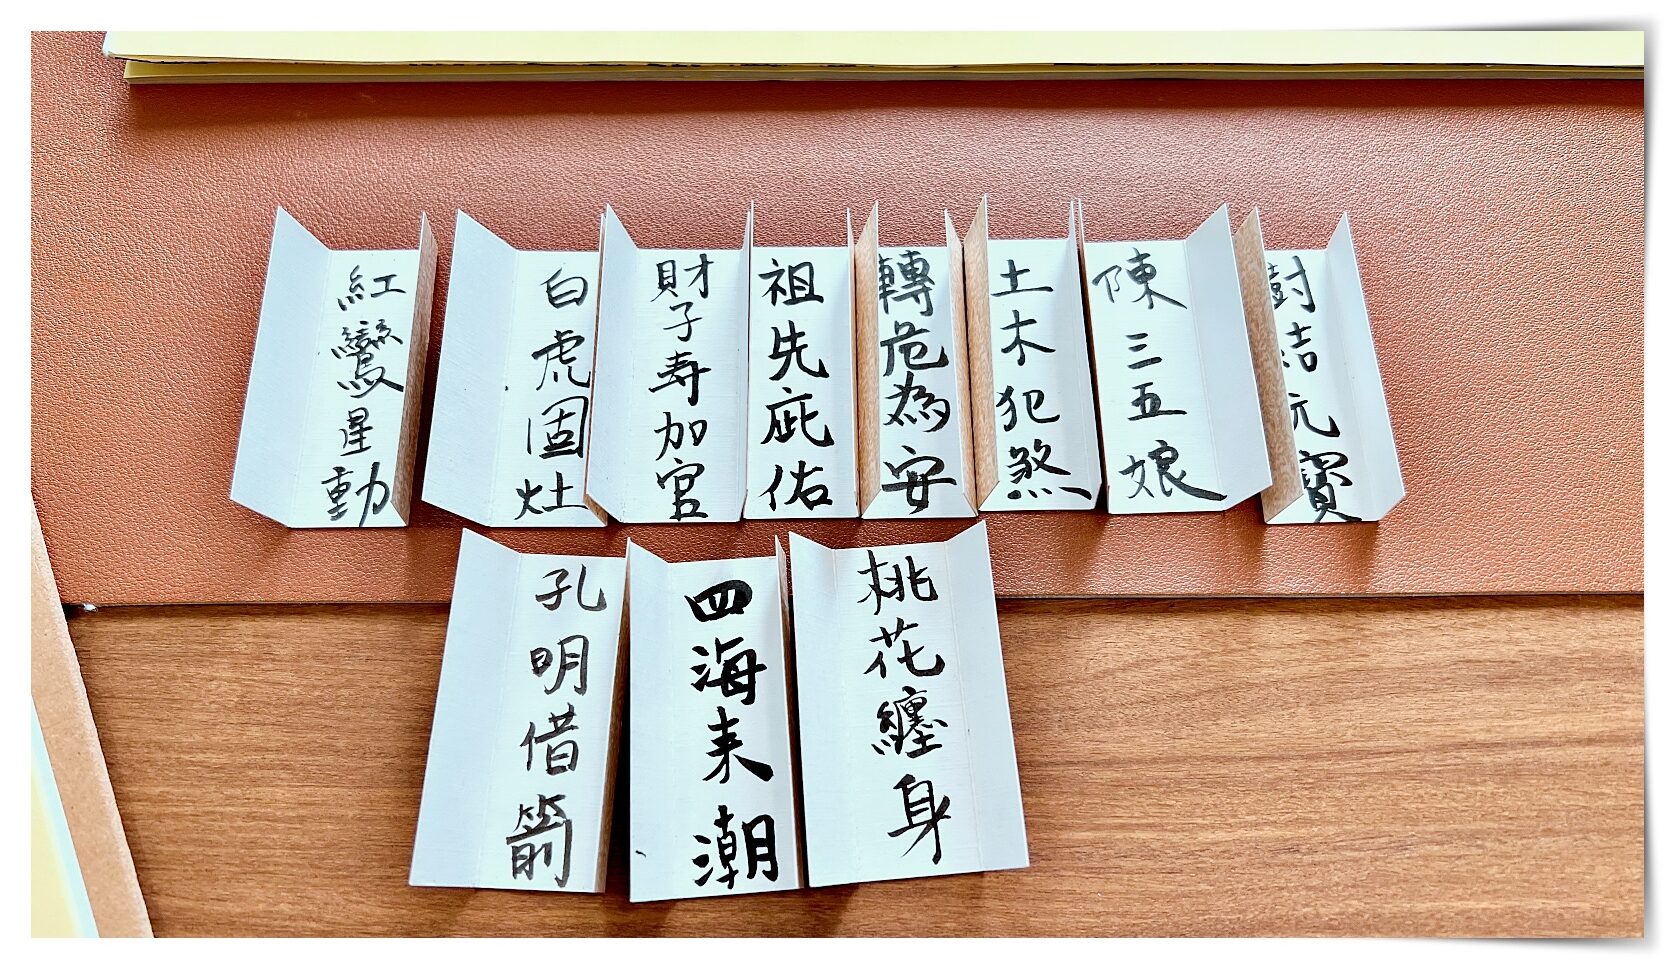 紅鸞星動
白虎固灶
財子寿加官
祖先庇佑
轉危為安
土木犯煞
陳三五娘
樹结元寳
孔明借箭
四海来潮
桃花纏身